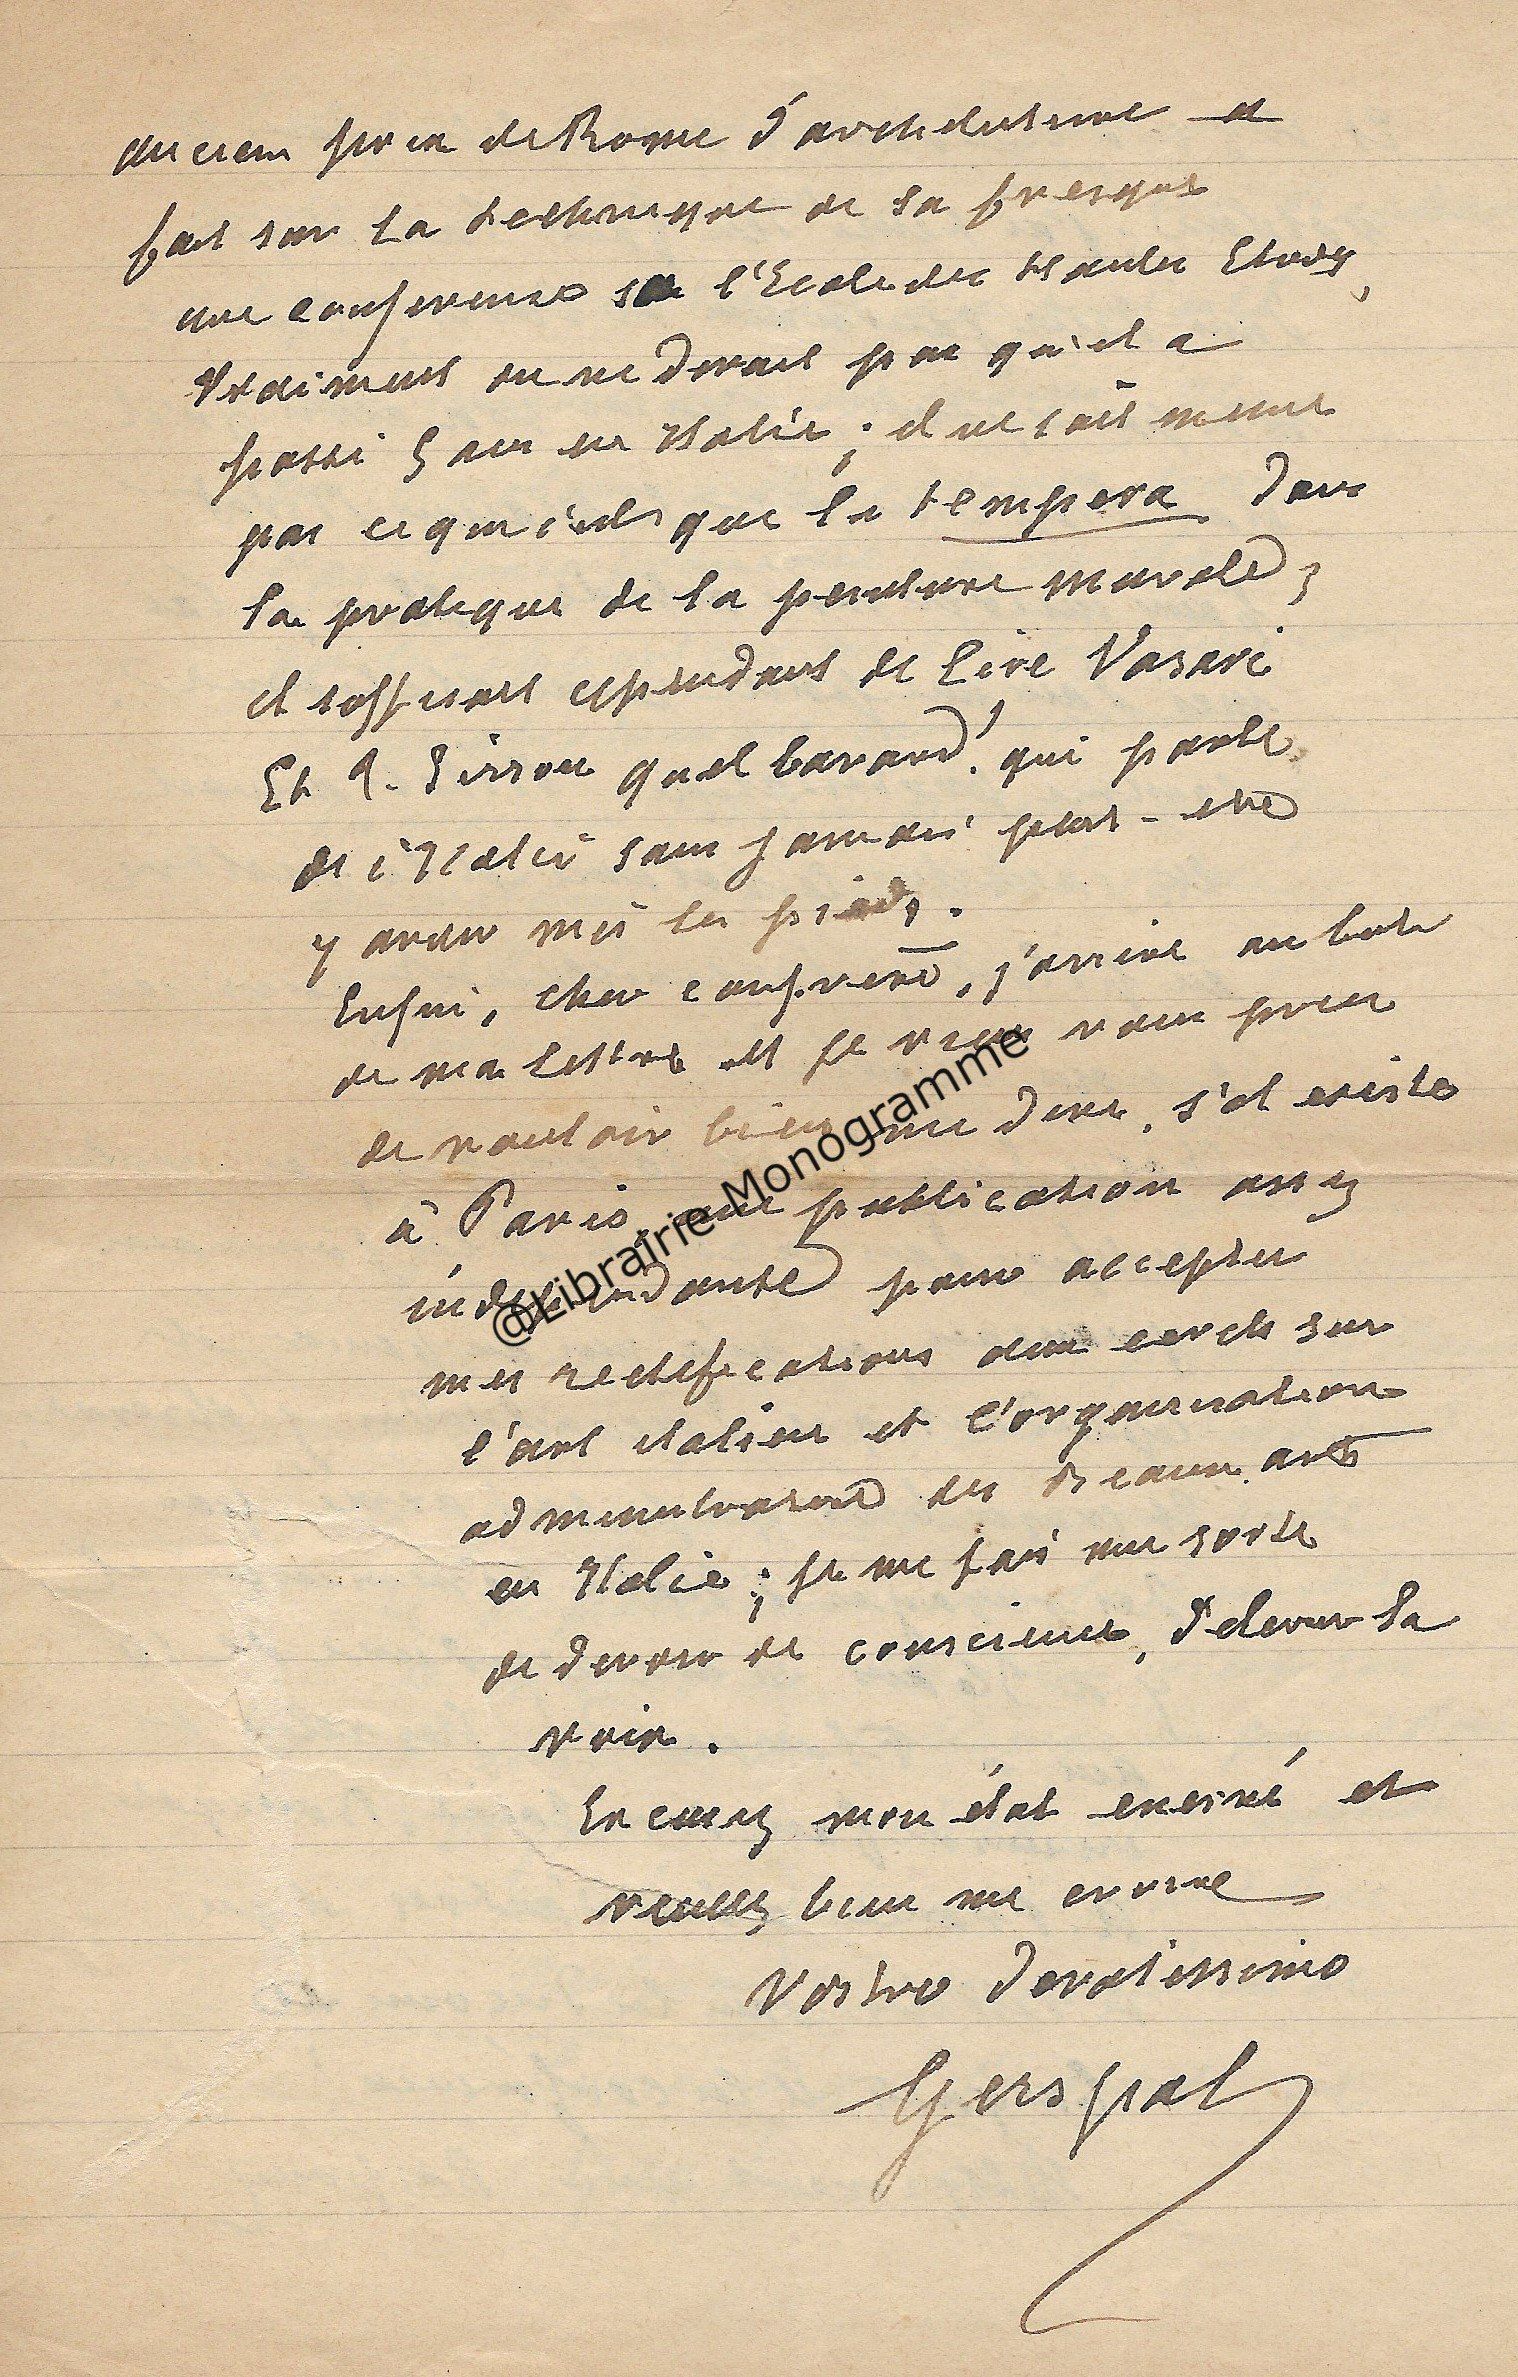 ancien prix de Rome d'architecture a
fait sur la technique de la fresque
une conference à l'Ecole des Hautes Etudes,
Vraiment on ne dirait pas qu'il a
passé 5 ans en Italie ; il ne sait meme
pas ce que c'est que la tempera dans
la pratique de la peinture murale ;
il suffisait cependant de lire Vasari
Et quel bavard ! qui parle
de l'Italie sans jamais peut-etre
y avoir mis les pieds.
Enfin, cher confrere, j'arrive au but
de ma lettre et je viens vous prier
de vouloir bien me dire, s'il existe
à Paris, une publication assez
indépendante pour accepter
mes rectifications aux ecrits sur
l'art italien et l'organisation
administrative des Beaux arts
en Italie ; je me fais une sorte
de devoir de conscience, d'elever la
voix.
Excusez mon état enervé et
veuillez bien me croire
Vostro devotissimo
Gerspach
@Librairie Monogramme